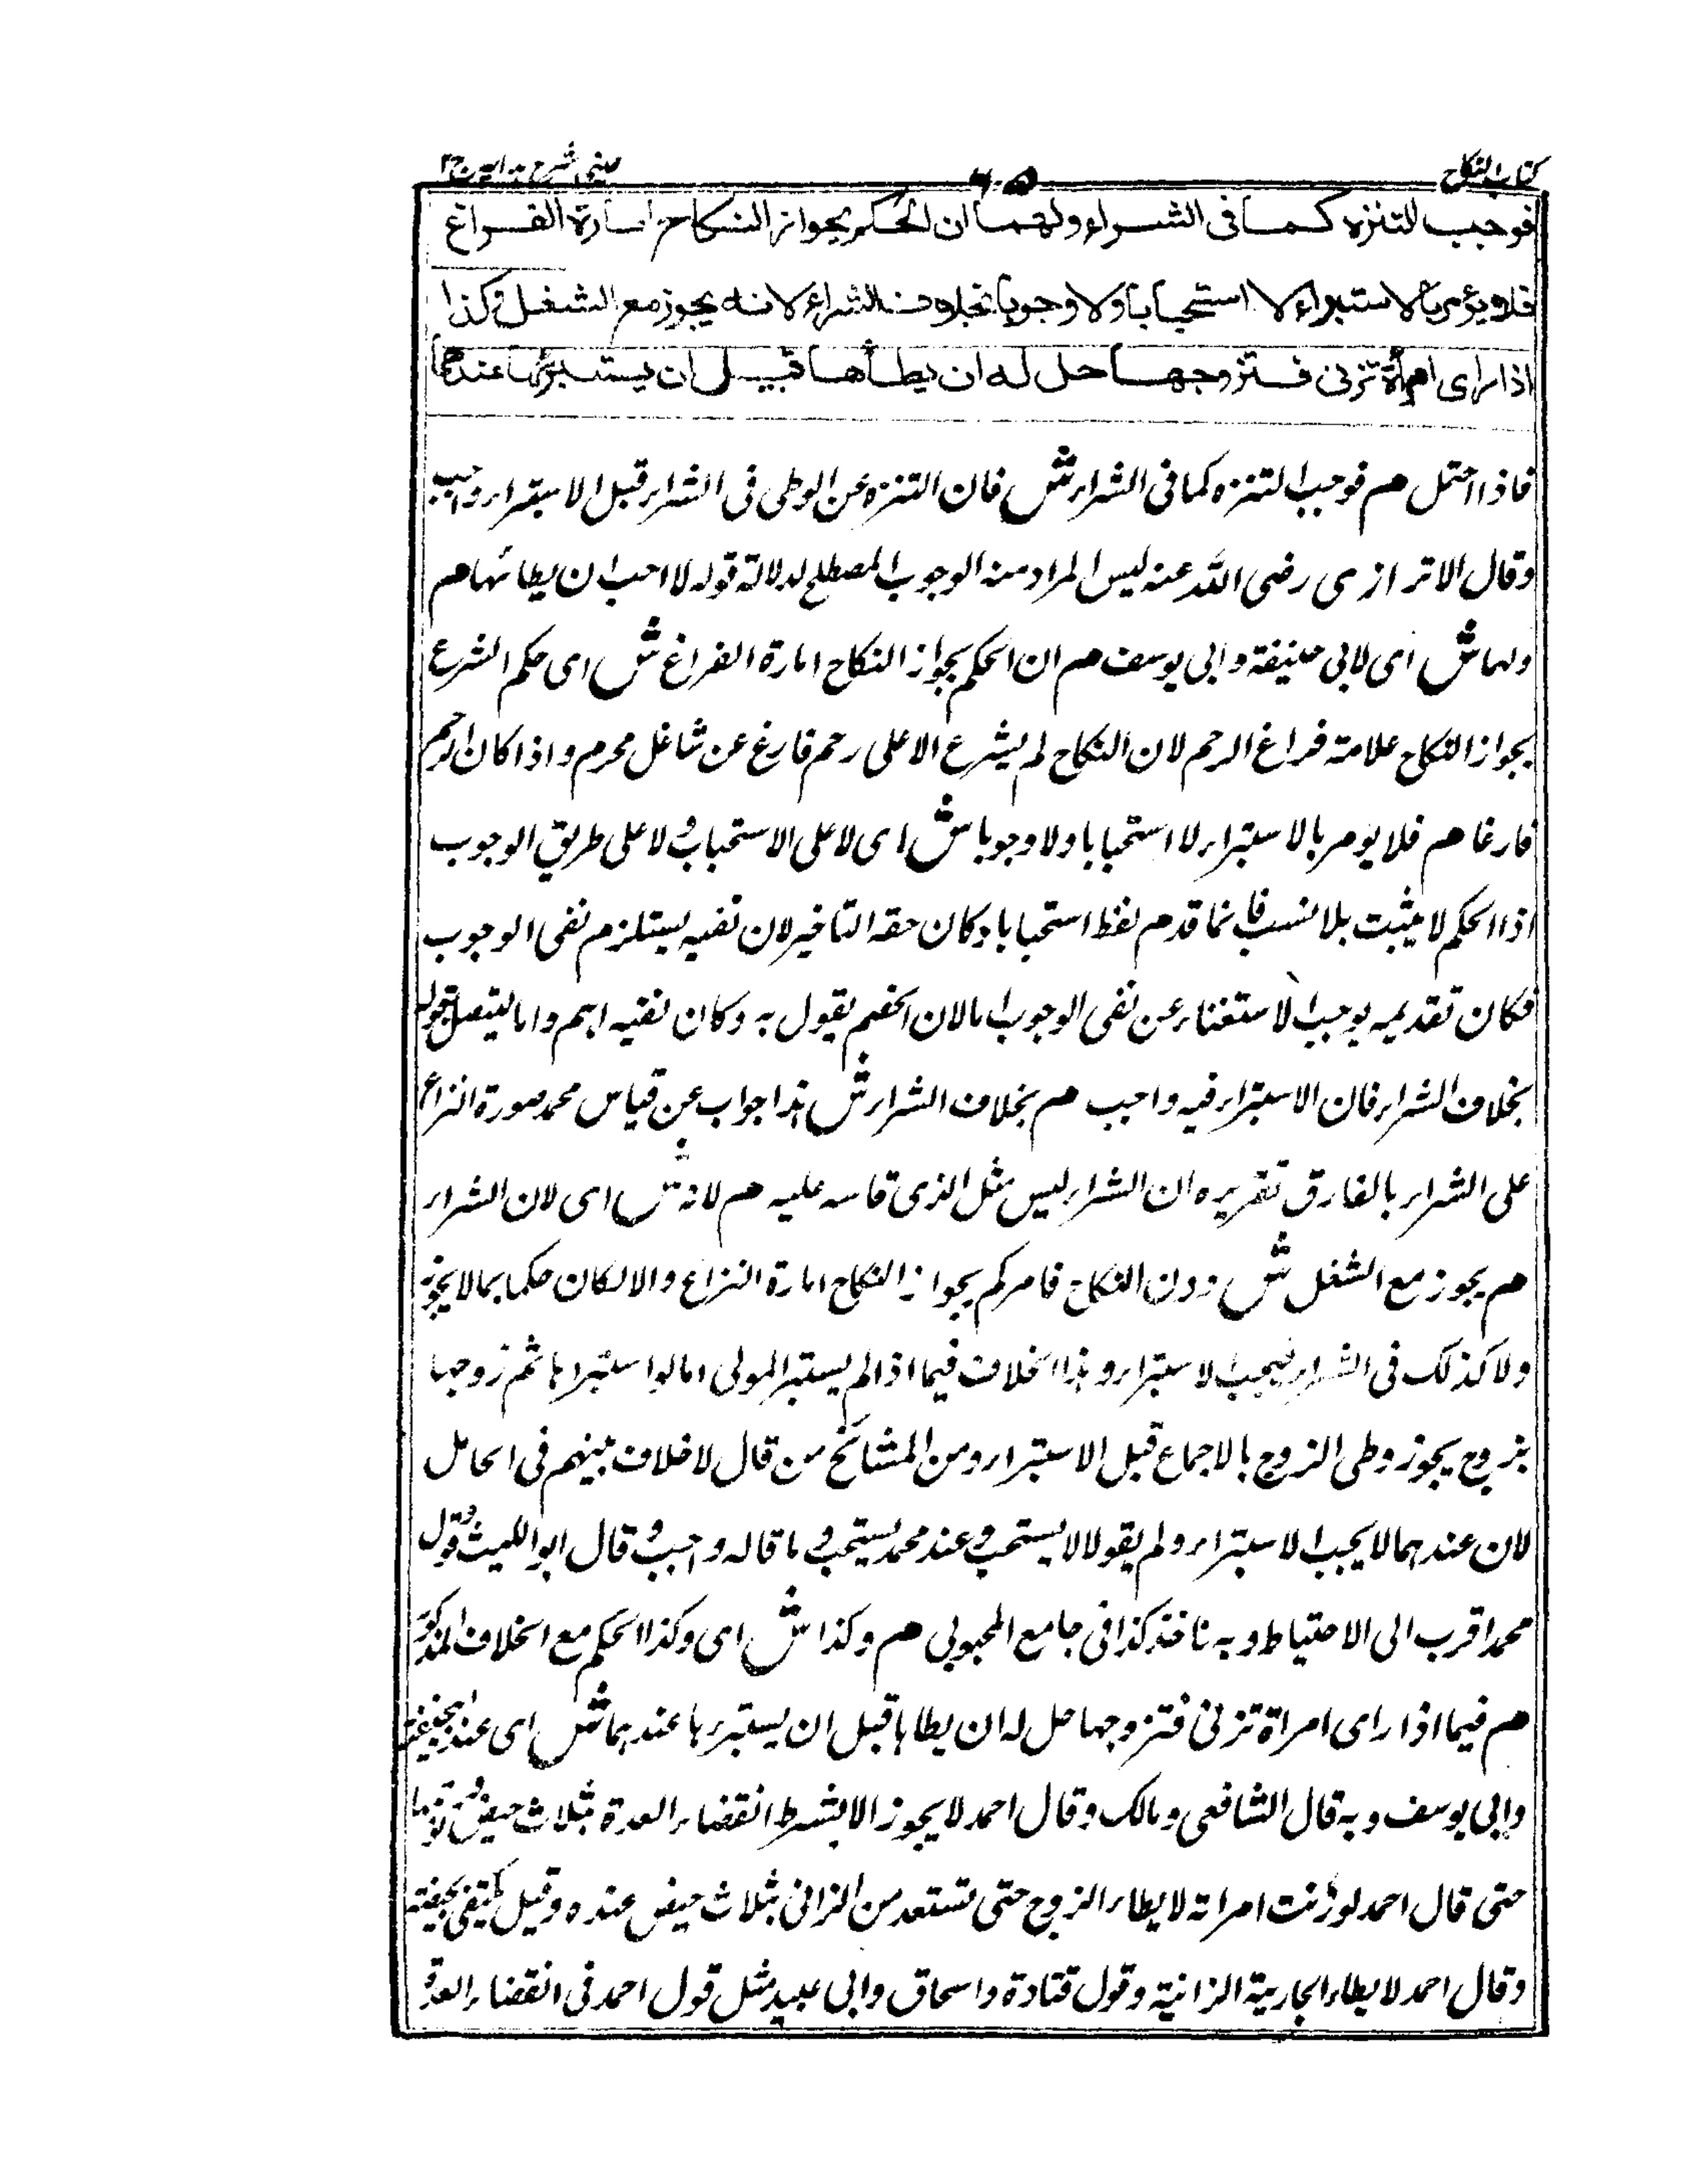 كتاب النكاح ٦٠٥ عينى شرح هدايه ج٢
فوجب التنزه كما فى الشراء ولهما ان الحكم بجواز النكاح امارة الفراغ
فلا يؤمر بالاستبراء لا استحبابا ولا وجوبا بخلاف الشراء لانه يجوز مع الشغل وكذا
اذا راى امرأة تزنى فتزوجها حل له ان يطأها قبل ان يستبرئها عندهما
فاذا احتمل م فوجب التنزه كما فى الشراء ش فان التنزه عن الوطى فى الشراء قبل الاستبراء واجب
وقال الاترازى رضى الله عنه ليس المراد منه الوجوب المصطلح لدلالة قوله لا احب ان يطائها م
ولهما ش اى لابى حنيفة وابى يوسف م ان الحكم بجواز النكاح امارة الفراغ ش اى حكم الشرع
بجواز النكاح علامة فراغ الرحم لان النكاح لم يشرع الا على رحم فارغ عن شاغل محرم واذا كان الرحم
فارغا م فلا يومر بالاستبراء لا استحبابا ولا وجوبا ش اى لا على الاستحباب ولا على طريق الوجوب
اذا الحكم لا يثبت بلا سبب فانما قدم لفظ استحبابا وكان حقه التاخير لان نفيه يستلزم نفى الوجوب
فكان تقديمه يوجب الاستغناء عن نفى الوجوب امالان الخصم يقول به وكان نفيه اهم واما ليتصل بقوله
بخلاف الشراء فان الاستبراء فيه واجب م بخلاف الشراء ش هذا جواب عن قياس محمد صورة النزاع
على الشراء بالفارق تقريره ان الشراء ليس مثل الذى قاسه عليه م لانه ش اى لان الشراء
م يجوز مع الشغل ش دون النكاح فامركم بجواز النكاح امارة النزاع والا لكان حكما بما لا يجوز
ولا كذلك فى الشراء فيجب الاستبراء وهذا الخلاف فيما اذا لم يستبر المولى اما لو استبراها ثم زوجها
بزوج يجوز وطى الزوج بالاجماع قبل الاستبراء ومن المشائخ من قال لا خلاف بينهم فى الحاصل
لان عندهما لا يجب الاستبراء ولم يقولا لا يستحب وعند محمد يستحب وما قاله واجب وقال ابو الليث وقول
محمد اقرب الى الاحتياط وبه ناخذ كذا فى جامع المحبوبى م وكذا ش اى وكذا الحكم مع الخلاف المذكور
م فيما اذا راى امراة تزنى فتزوجها حل له ان يطاها قبل ان يستبرءها عندهما ش اى عند ابيحنيفة
وابى يوسف وبه قال الشافعى ومالك وقال احمد لا يجوز الا بشرط انقضاء العدة بثلاث حيض وتوبتها
حتى قال احمد لو زنت امراته لا يطاء الزوج حتى تستعد من الزانى بثلاث حيض عنده وقيل يكتفى بحيضة
وقال احمد لا يطاء الجارية الزانية وقول قتادة واسحاق وابى عبيد مثل قول احمد فى انقضاء العدة